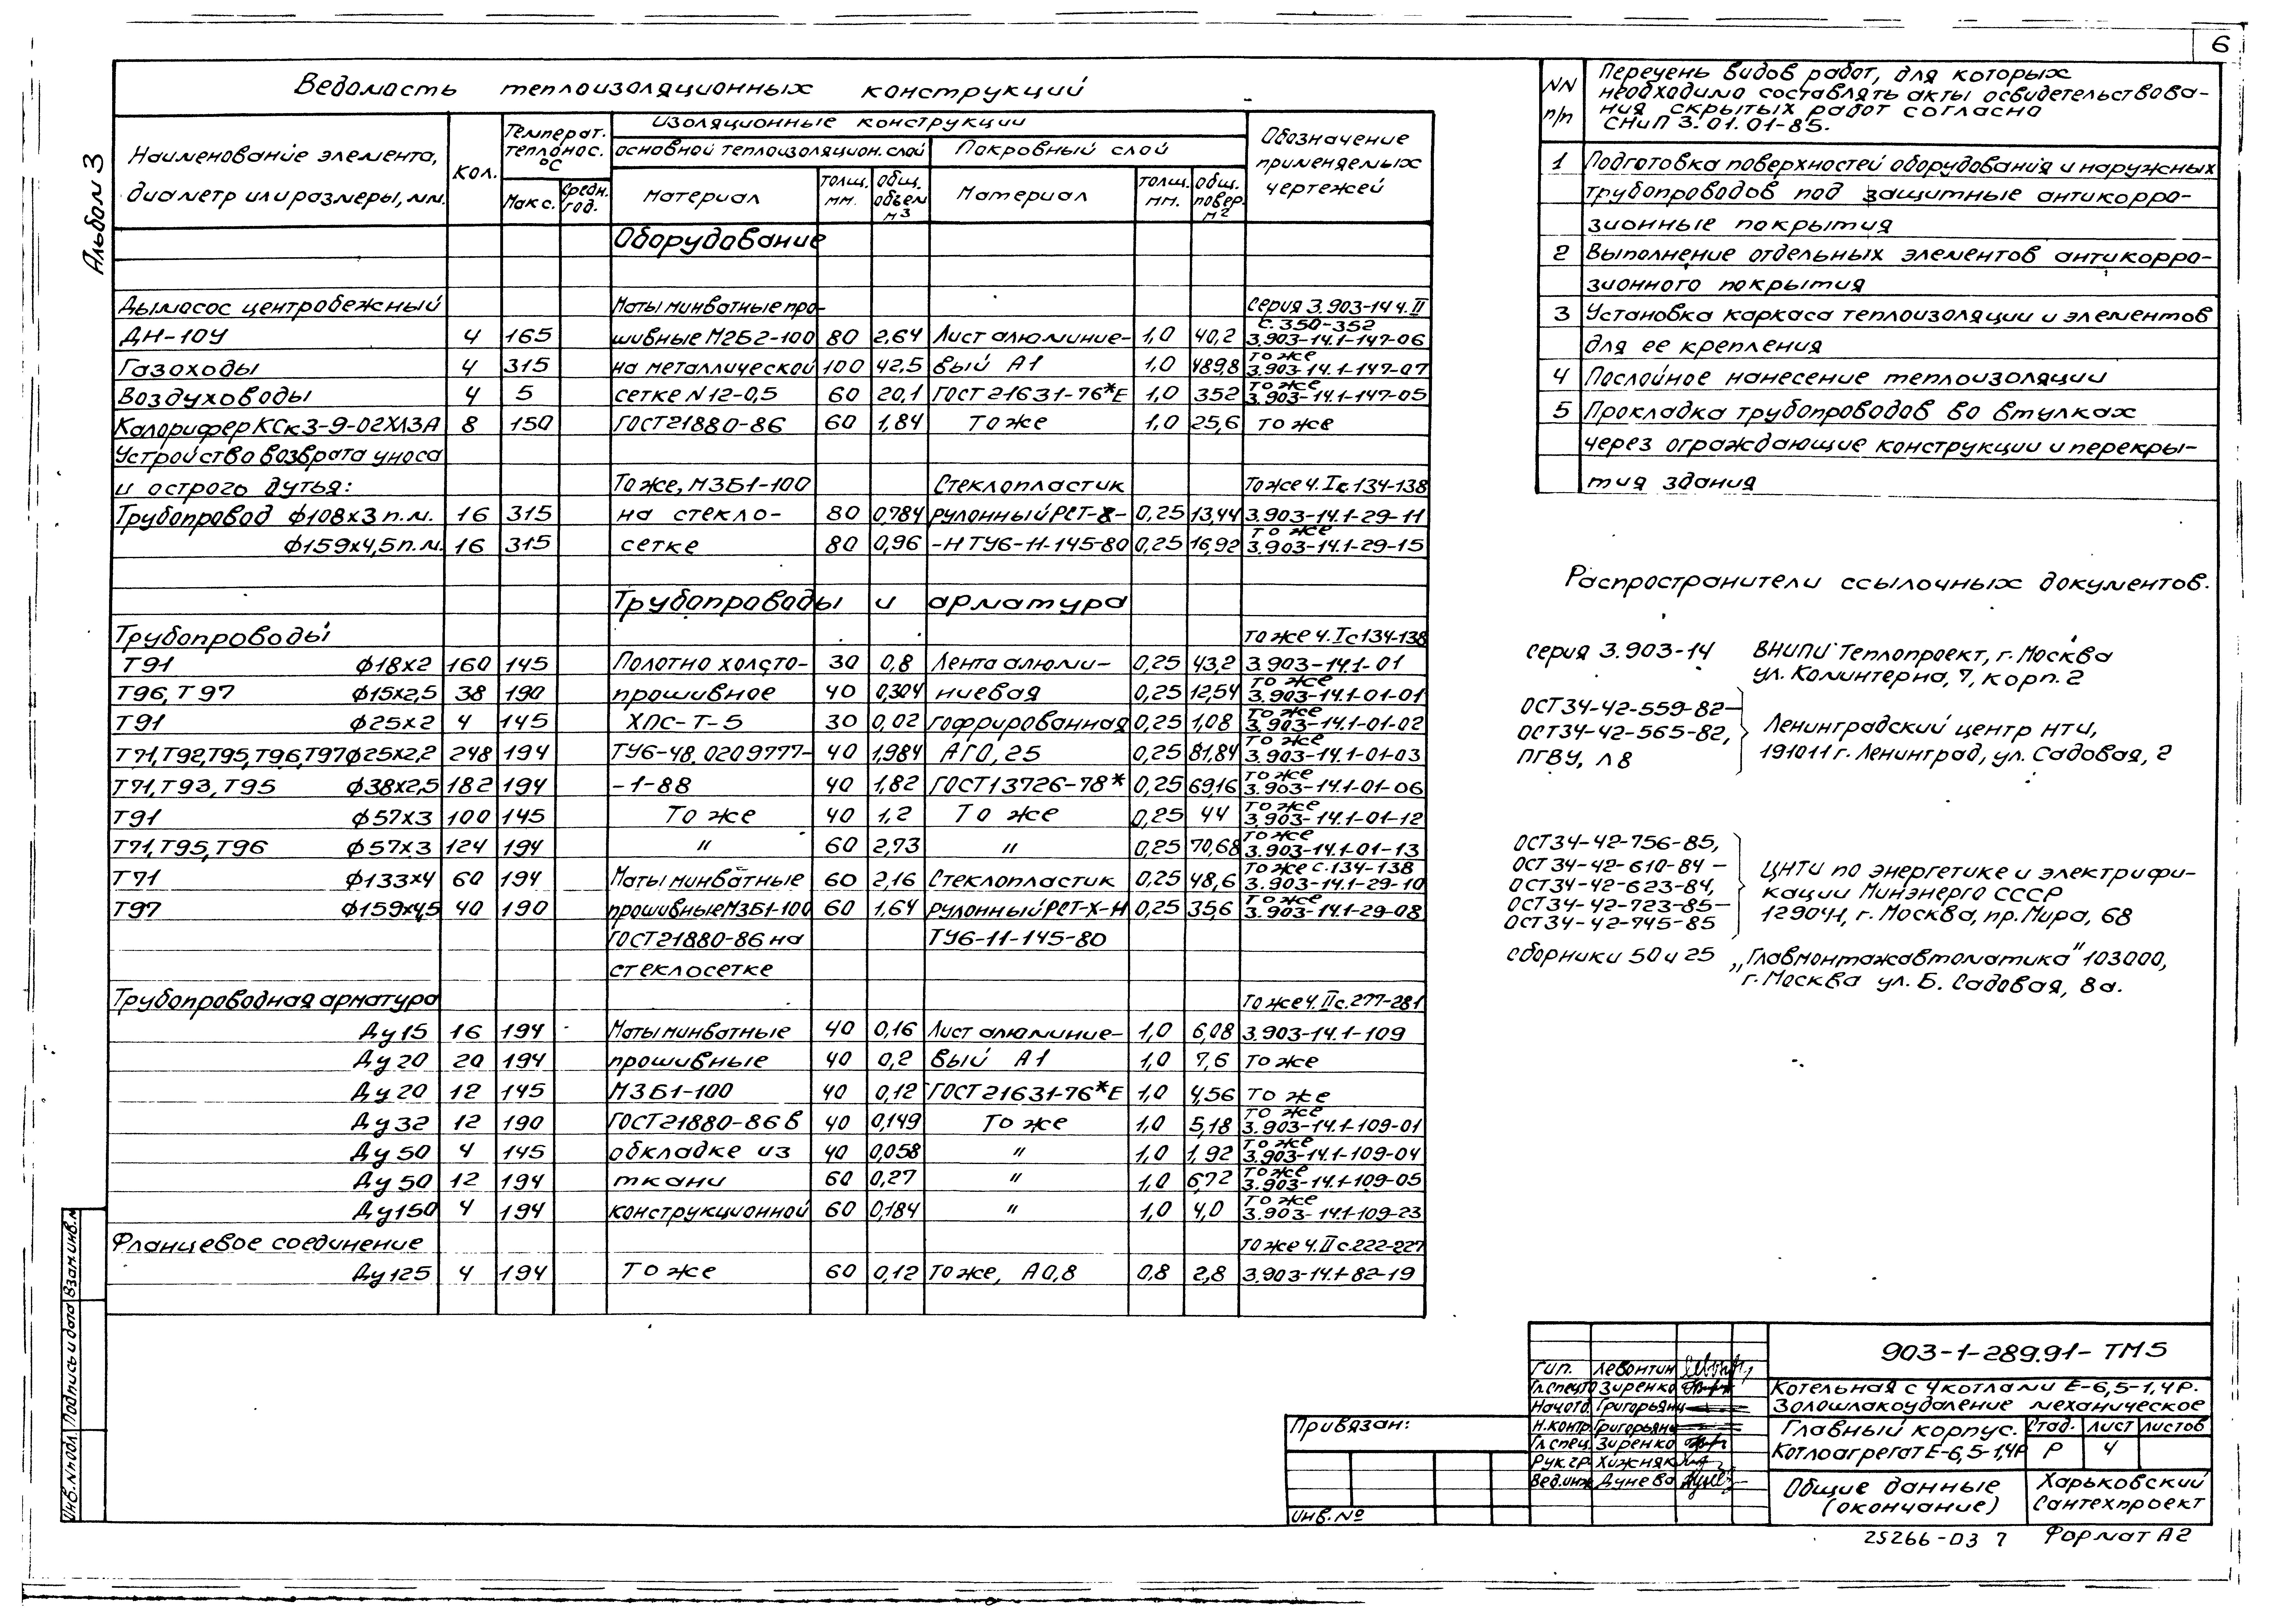 6
Альбом 3
Ведомасть теплоизоляционных конструкций
Наименование элемента, диаметр или размеры, мм.
кол.
Температ. теплонос. °С
Макс.
Средн. год.
изоляционные конструкции
основной теплоизоляцион. слой
Покровный слой
Материал
толщ. мм.
общ. объем м3
Материал
толщ. мм.
общ. повер. м2
Обозначение применяемых чертежей
Оборудование
Дымосос центробежный Маты минватные про- серия 3.903-14 ч. II
с. 350-352
ДН-10У 4 165 шивные М2Б2-100 80 2,64 Лист алюминие- 1,0 40,2 3.903-14.1-147-06
то же
Газоходы 4 315 на металлической 100 42.5 вый А1 1,0 489,8 3.903-14.1-147-07
то же
Воздуховоды 4 5 сетке N12-0,5 60 20,1 ГОСТ 21631-76*Е 1,0 352 3.903-14.1-147-05
Калорифер КСк3-9-02ХЛ3А 8 150 ГОСТ21880-86 60 1,84 То же 1,0 25,6 то же
Устройство возврата уноса
и острого дутья: То же, М3Б1-100 Стеклопластик То же ч. I с. 134-138
Трубопровод ф108х3 п.м. 16 315 на стекло- 80 0,784 рулонный РСТ-Х- 0,25 13,44 3.903-14.1-29-11
то же
ф159х4,5 п.м. 16 315 сетке 80 0,96 -Н ТУ6-11-145-80 0,25 16,92 3.903-14.1-29-15
Трубопроводы и арматура
Трубопроводы то же ч. I с 134-138
Т91 ф18х2 160 145 Полотно холсто- 30 0,8 Лента алюми- 0,25 43,2 3.903-14.1-01
то же
Т96, Т97 ф15х2,5 38 190 прошивное 40 0,304 ниевая 0,25 12,54 3.903-14.1-01-01
то же
Т91 ф25х2 4 145 ХПС-Т-5 30 0,02 гофрированная 0,25 1,08 3.903-14.1-01-02
то же
Т71, Т92, Т95, Т96, Т97 ф25х2,2 248 194 ТУ6-48. 0209777- 40 1,984 АГ0,25 0,25 81,84 3.903-14.1-01-03
то же
Т71, Т93, Т95 ф38х2,5 182 194 -1-88 40 1,82 ГОСТ13726-78* 0,25 69,16 3.903-14.1-01-06
то же
Т91 ф57х3 100 145 То же 40 1,2 То же 0,25 44 3.903-14.1-01-12
то же
Т71, Т95, Т96 ф57х3 124 194 " 60 2,73 " 0,25 70,68 3.903-14.1-01-13
то же с. 134-138
Т71 ф133х4 60 194 Маты минватные 60 2,16 Стеклопластик 0,25 48,6 3.903-14.1-29-10
то же
Т97 ф159х4,5 40 190 прошивные М3Б1-100 60 1,64 рулонный РСТ-Х-Н 0,25 35,6 3.903-14.1-29-08
ГОСТ21880-86 на ТУ6-11-145-80
стеклосетке
Трубопроводная арматура То же ч. II с. 277-281
Ду 15 16 194 Маты минватные 40 0,16 Лист алюминие- 1,0 6,08 3.903-14.1-109
Ду 20 20 194 прошивные 40 0,2 вый А1 1,0 7,6 То же
Ду 20 12 145 М3Б1-100 40 0,12 ГОСТ 21631-76*Е 1,0 4,56 То же
то же
Ду 32 12 190 ГОСТ21880-86 в 40 0,149 То же 1,0 5,18 3.903-14.1-109-01
то же
Ду 50 4 145 обкладке из 40 0,058 " 1,0 1,92 3.903-14.1-109-04
то же
Ду 50 12 194 ткани 60 0,27 " 1,0 6,72 3.903-14.1-109-05
то же
Ду150 4 194 конструкционной 60 0,184 " 1,0 4,0 3.903-14.1-109-23
Фланцевое соединение то же ч. II с. 222-227
Ду 125 4 194 То же 60 0,12 То же, А0,8 0,8 2,8 3.903-14.1-82-19
NN п/п
Перечень видов работ, для которых
необходимо составлять акты освидетельствова-
ния скрытых работ согласно
СНиП 3.01.01-85.
1 Подготовка поверхностей оборудования и наружных
трубопроводов под защитные антикорро-
зионные покрытия
2 Выполнение отдельных элементов антикорро-
зионного покрытия
3 Установка каркаса теплоизоляции и элементов
для ее крепления
4 Послойное нанесение теплоизоляции
5 Прокладка трубопроводов во втулках
через ограждающие конструкции и перекры-
тия здания
Распространители ссылочных документов.
серия 3.903-14 ВНИПИ Теплопроект, г. Москва
ул. Коминтерна, 7, корп. 2
ОСТ34-42-559-82-
ОСТ34-42-565-82,
ПГВУ, Л8
Ленинградский центр НТИ,
191011 г. Ленинград, ул. Садовая, 2
ОСТ34-42-756-85,
ОСТ34-42-610-84 -
ОСТ34-42-623-84,
ОСТ34-42-723-85-
ОСТ34-42-745-85
ЦНТИ по энергетике и электрифи-
кации Минэнерго СССР
129041, г. Москва, пр. Мира, 68
сборники 50 и 25 „Главмонтажавтоматика" 103000,
г. Москва ул. Б. Садовая, 8а.
Инв. N подл. Подпись и дата Взам. инв. N
Привязан:
Инв. №
Гип. Левонтин
Гл.спец.ТО Зиренко
Нач.отд. Григорьянц
Н.контр. Григорьянц
Гл.спец. Зиренко
Рук.гр. Хижняк
Вед.инж. Дунева
903-1-289.91- ТМ5
Котельная с 4 котлами Е-6,5-1,4Р.
Золошлакоудаление механическое
Главный корпус.
Котлоагрегат Е-6,5-1,4Р
Стад. Лист Листов
Р 4
Общие данные
(окончание)
Харьковский
Сантехпроект
25266-03 7 Формат А2